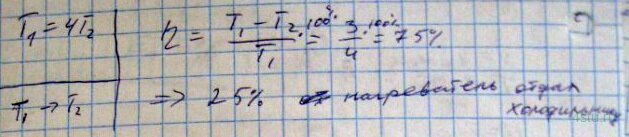 T₁ = 4T₂
η = (T₁ - T₂)/T₁ · 100% = 3/4 · 100% = 75%
T₁ → T₂
=> 25% нагреватель отдал
холодильнику